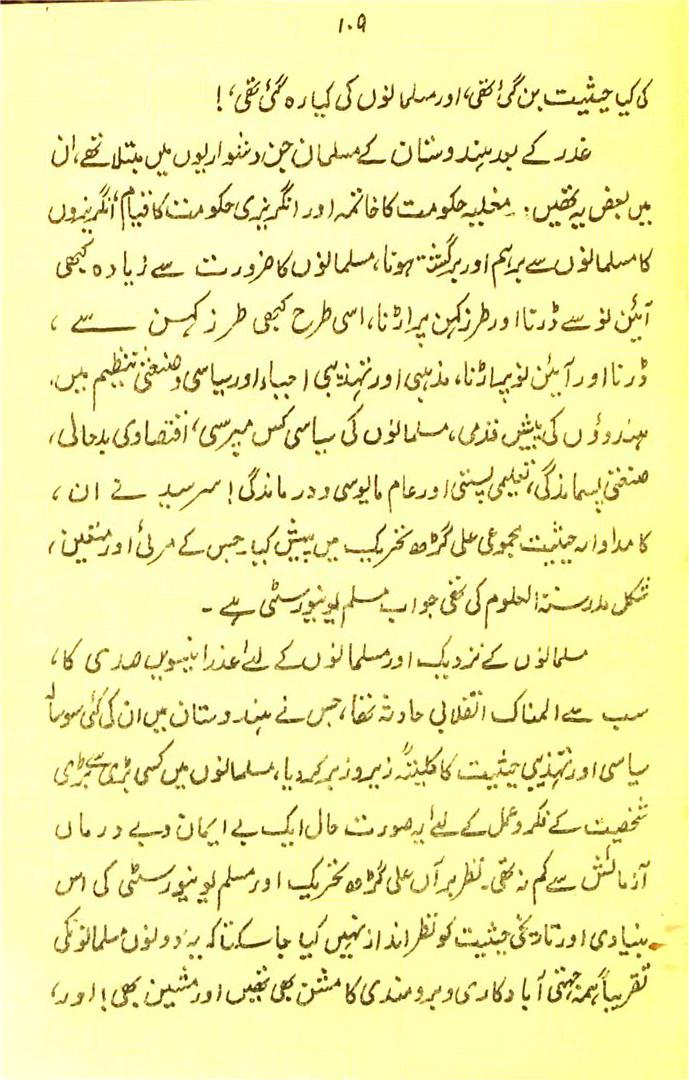 ۱۰۹
کی کیا حیثیت بن گئی تھی، اور مسلمانوں کی کیا رہ گئی تھی، !
غدر کے بعد ہندوستان کے مسلمان جن دشواریوں میں مبتلا تھے، ان
میں بعض یہ تھیں:۔ مغلیہ حکومت کا خاتمہ اور انگریزی حکومت کا قیام، انگریزوں
کا مسلمانوں سے برہم اور برگشتہ ہونا، مسلمانوں کا ضرورت سے زیادہ کبھی
آئین نو سے ڈرنا اور طرز کہن پر اڑنا، اسی طرح کبھی طرز کہن سے ،
ڈرنا اور آئین نو پر اڑنا، مذہبی اور تہذیبی احیاء اور سیاسی و صنعتی تنظیم میں،
ہندوؤں کی پیش قدمی، مسلمانوں کی سیاسی کس مپرسی، اقتصادی بدحالی،
صنعتی پسماندگی، تعلیمی پستی اور عام مایوسی و درماندگی! سرسید نے ان ،
کا مداوا بہ حیثیت مجموعی علی گڑھ تحریک میں پیش کیا۔ جس کے مرئی اور متعین ،
شکل مدرستہ العلوم کی تھی جو اب مسلم یونیورسٹی ہے ۔
مسلمانوں کے نزدیک اور مسلمانوں کے لئے غدر انیسویں صدی کا ،
سب سے المناک انقلابی حادثہ تھا، جس نے ہندوستان میں ان کی کئی سو سالہ
سیاسی اور تہذیبی حیثیت کا کلیتہً زیر و زبر کر دیا، مسلمانوں میں کسی بڑی سے بڑی
شخصیت کے فکر و عمل کے لئے یہ صورت حال ایک بے ایمان و بے درماں
آزمائش سے کم نہ تھی۔ نظر بر آں علی گڑھ تحریک اور مسلم یونیورسٹی کی اس
بنیادی اور تاریخی حیثیت کو نظر انداز نہیں کیا جا سکتا کہ یہ دونوں مسلمانوں کی
تقریباً ہمہ جہتی آبادکاری و برومندی کا مشن بھی تھیں اور مشین بھی! اور ،